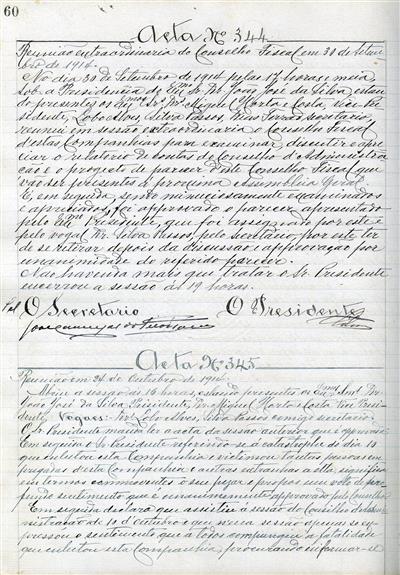 60
Acta Nº 344
Reunião extraordinaria do Conselho Fiscal em 30 de Setem-
bro de 1914.
No dia 30 de Setembro de 1914 pelas 17 horas e meia,
sob a Presidencia do Exmo Sr. Dr. João José da Silva, estan-
do presentes os Exmos Srs. Miguel Horta e Costa, Vice-Pre-
sidente, Lobo Alves, Silva Passos, secretario,
reuniu em sessão extraordinaria o Conselho Fiscal
d'estas Companhias para examinar, discutir e apre-
ciar o relatorio de contas do Conselho d'Administra-
cao e o projecto de parecer d'este Conselho Fiscal que
vao ser presentes á proxima Assembleia Geral.
E, em seguida, sendo minuciosamente examinados
e apreciados, foi approvado o parecer apresentado
pelo Exmo Presidente, que foi assignado por este e
pelo vogal Sr. Silva Passos, pelo secretario, por este ter
de se retirar depois da discussão e approvação por
unanimidade do referido parecer.
Nao havendo mais que tratar o Sr. Presidente
encerrou a sessão ás 19 horas.
O Secretario O Presidente
Acta Nº 345
Reunião em 24 de Outubro de 1914.
Abriu a sessão ás 15 horas, estando presentes os Exmos Snrs. Dr.
João José da Silva, Presidente, Dr. Miguel Horta e Costa Vice Presi-
dente, Vogaes: Srs. Lobo Alves, Silva Passos comigo secretario.
O Sr. Presidente mandou ler a acta da sessão anterior que é approvada.
Em seguida o Sr. Presidente referindo-se á catastrophe do dia 10
que enlutou esta Companhia e victimou tantas pessoas em-
pregadas d'esta Companhia e outras extranhas a ella, significa
em termos commoventes o seu pezar e propoz um voto de pro-
fundo sentimento que é unanimemente approvado pelo Conselho.
Em seguida declara que assistiu á sessão do Conselho d'Admi-
nistração de 10 d'Outubro e que n'essa sessão apenas se ex-
pressou o sentimento que a todos compungiu a fatalidade
que enlutou esta Companhia, procurando informar-se